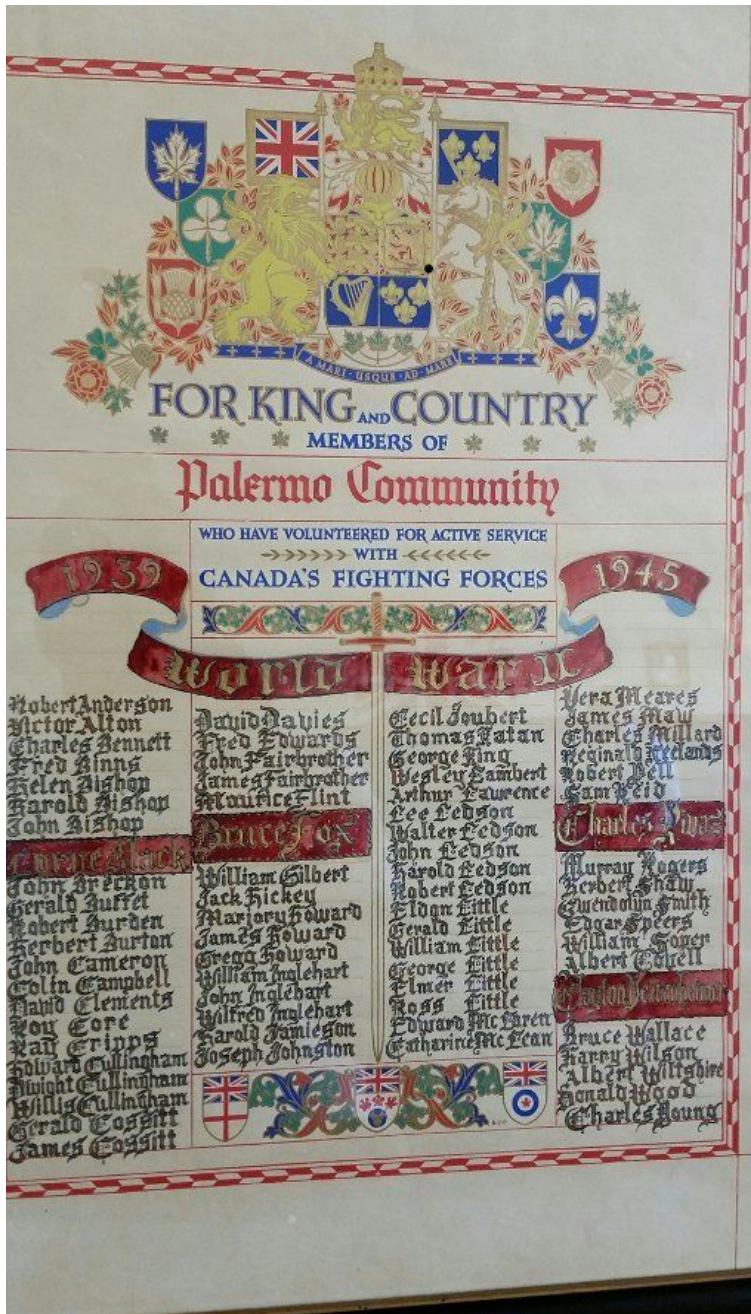 A MARI · USQUE · AD · MARE
FOR KING AND COUNTRY
MEMBERS OF
Palermo Community
WHO HAVE VOLUNTEERED FOR ACTIVE SERVICE
WITH
CANADA'S FIGHTING FORCES
1939
1945
World War II
Robert Anderson
Victor Alton
Charles Bennett
Fred Binns
Helen Bishop
Harold Bishop
John Bishop
Lorne Black
John Breckon
Gerald Buffet
Robert Burden
Herbert Burton
John Cameron
Colin Campbell
David Clements
Roy Core
Ray Cripps
Edward Cullingham
Dwight Cullingham
Willis Cullingham
Gerald Cossitt
James Cossitt
David Davies
Fred Edwards
John Fairbrother
James Fairbrother
Maurice Flint
Bruce Fox
William Gilbert
Jack Hickey
Marjory Howard
James Howard
Gregg Howard
William Inglehart
John Inglehart
Wilfred Inglehart
Harold Jamieson
Joseph Johnston
Cecil Joubert
Thomas Katan
George King
Wesley Lambert
Arthur Lawrence
Lee Ledson
Walter Ledson
John Ledson
Harold Ledson
Robert Ledson
Eldon Little
Gerald Little
William Little
George Little
Elmer Little
Ross Little
Edward McLaren
Catharine McLean
Vera Meares
James Maw
Charles Millard
Reginald Neelands
Robert Pell
Sam Reid
Charles
Murray Rogers
Herbert Shaw
Gwendolyn Smith
Edgar Speers
William Soper
Albert
Clayton
Bruce Wallace
Harry Wilson
Albert Wiltshire
Donald Wood
Charles Young